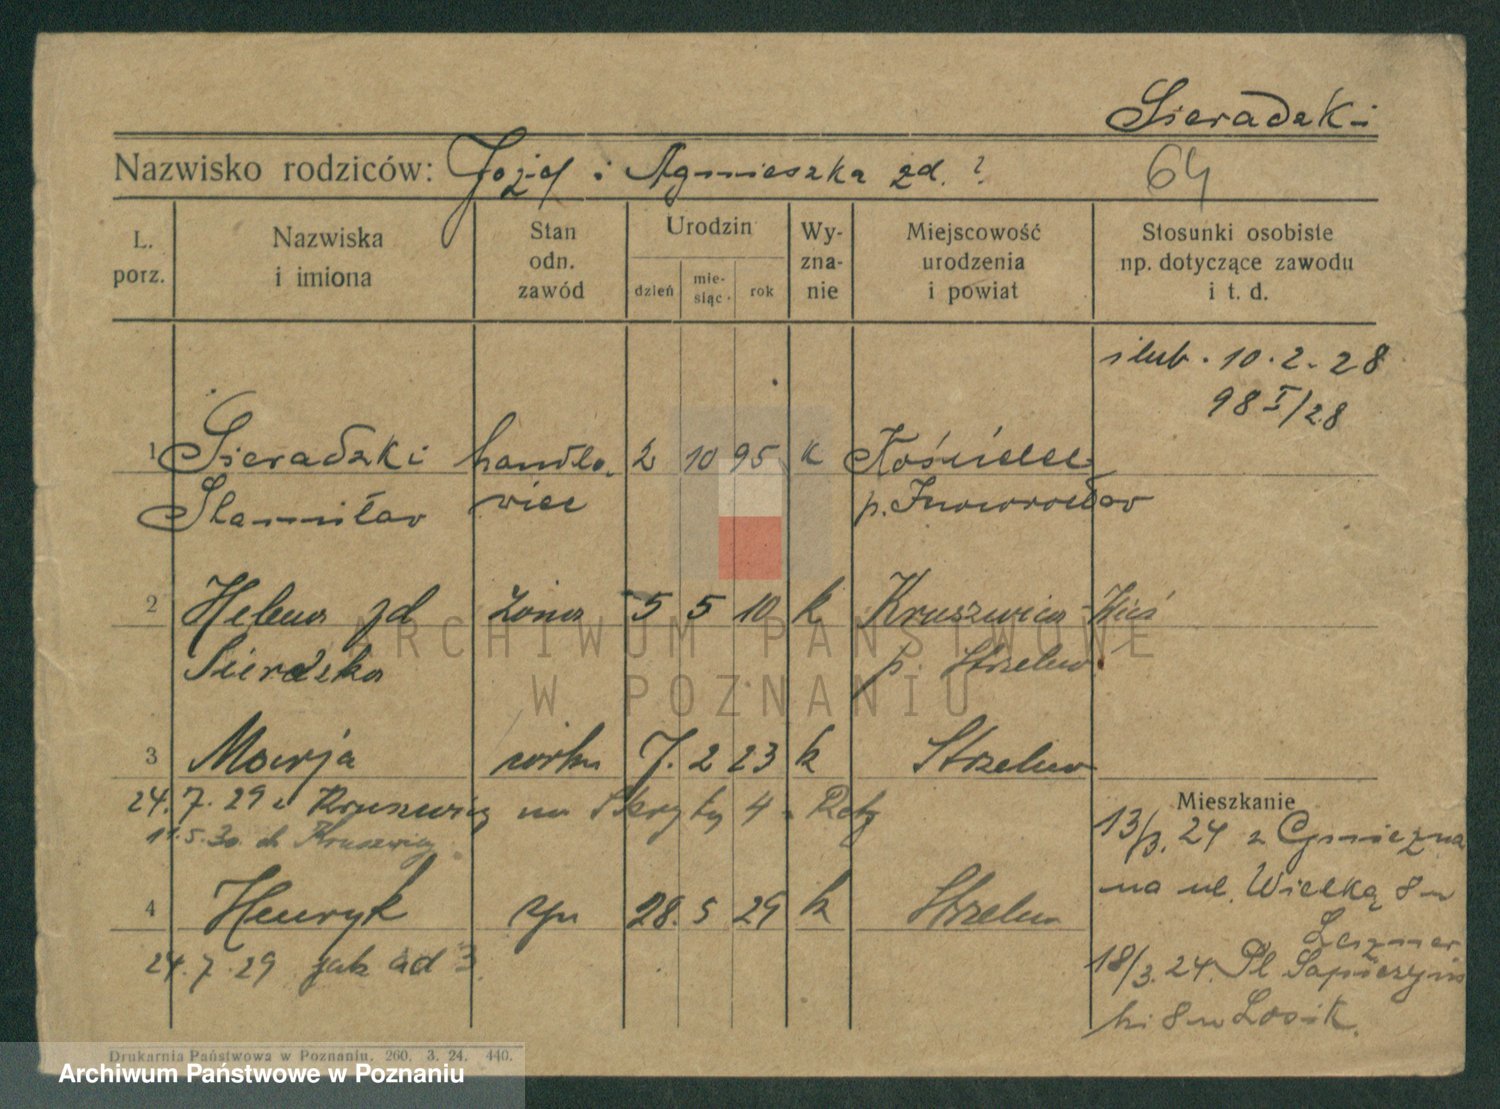 Sieradzki
Nazwisko rodziców: Józef i Agnieszka zd. ?
64
L. porz.
Nazwiska i imiona
Stan odn. zawód
Urodzin
dzień
mie-siąc
rok
Wy-zna-nie
Miejscowość urodzenia i powiat
Stosunki osobiste np. dotyczące zawodu i t. d.
ślub. 10.2.28
98 I/28
1 Sieradzki handlo- 2 10 95 k Kościelec
Stanisław wiec p. Inowrocław
2 Helena zd żona 5 5 10 k Kruszwica-Wieś
p. Strzelno
ARCHIWUM PAŃSTWOWE
W POZNANIU
3 Marja córka 7. 2 23 k Strzelno
24.7.29 z Kruszwicy na 4
11.5.30 do Kruszwicy
Mieszkanie
13/3.24 z Gniezna
na ul. Wielką 8 u
4 Henryk syn 28. 5 29 k Strzelno
24.7.29 jak ad 3
18/3.24. Pl Sapieżyńs
ki 8 u Losik.
Drukarnia Państwowa w Poznaniu. 260. 3. 24. 440.
Archiwum Państwowe w Poznaniu